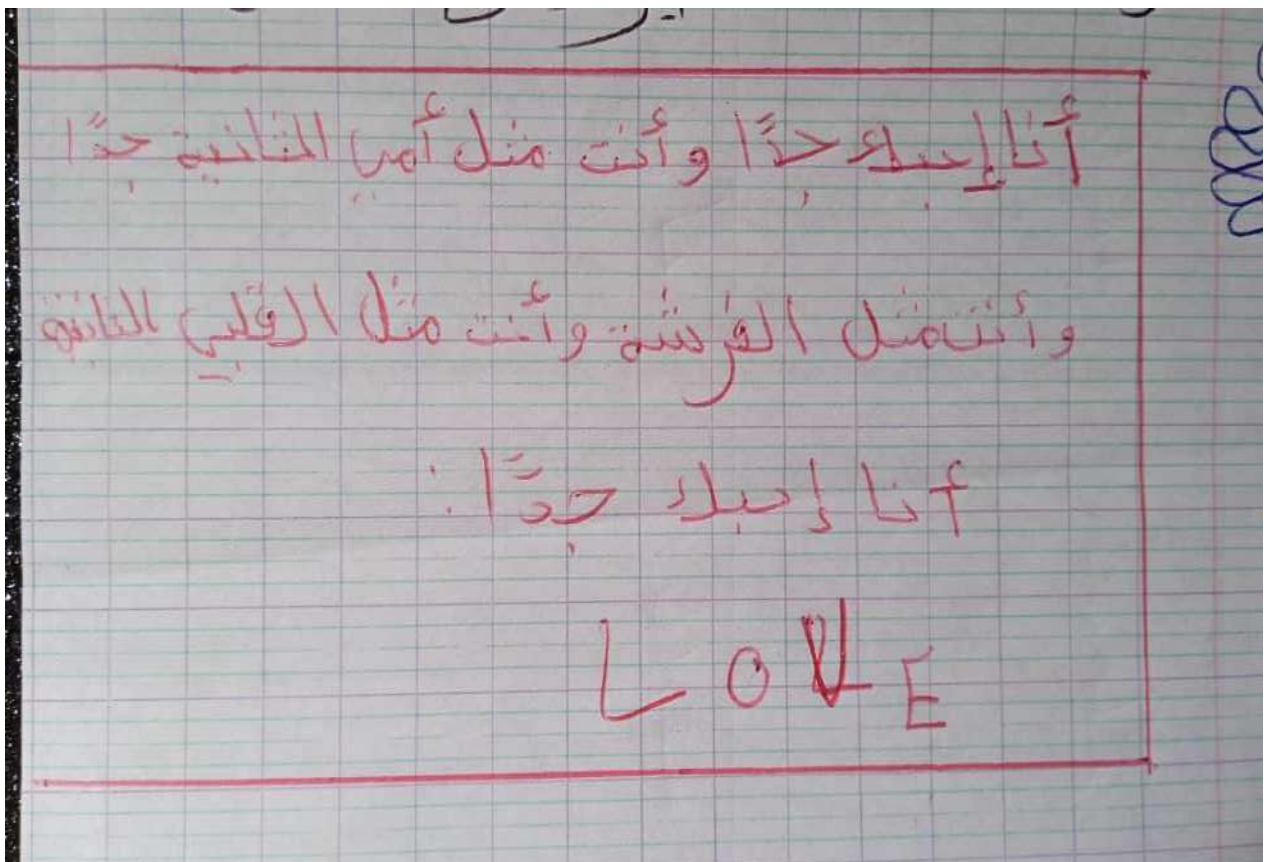 أنا إحبك جدًا وأنت مثل أمي الثانية جدًا
وأنت مثل الفرشة وأنت مثل القلبي الثانية
أنا إحبك جدًا :
LOVE